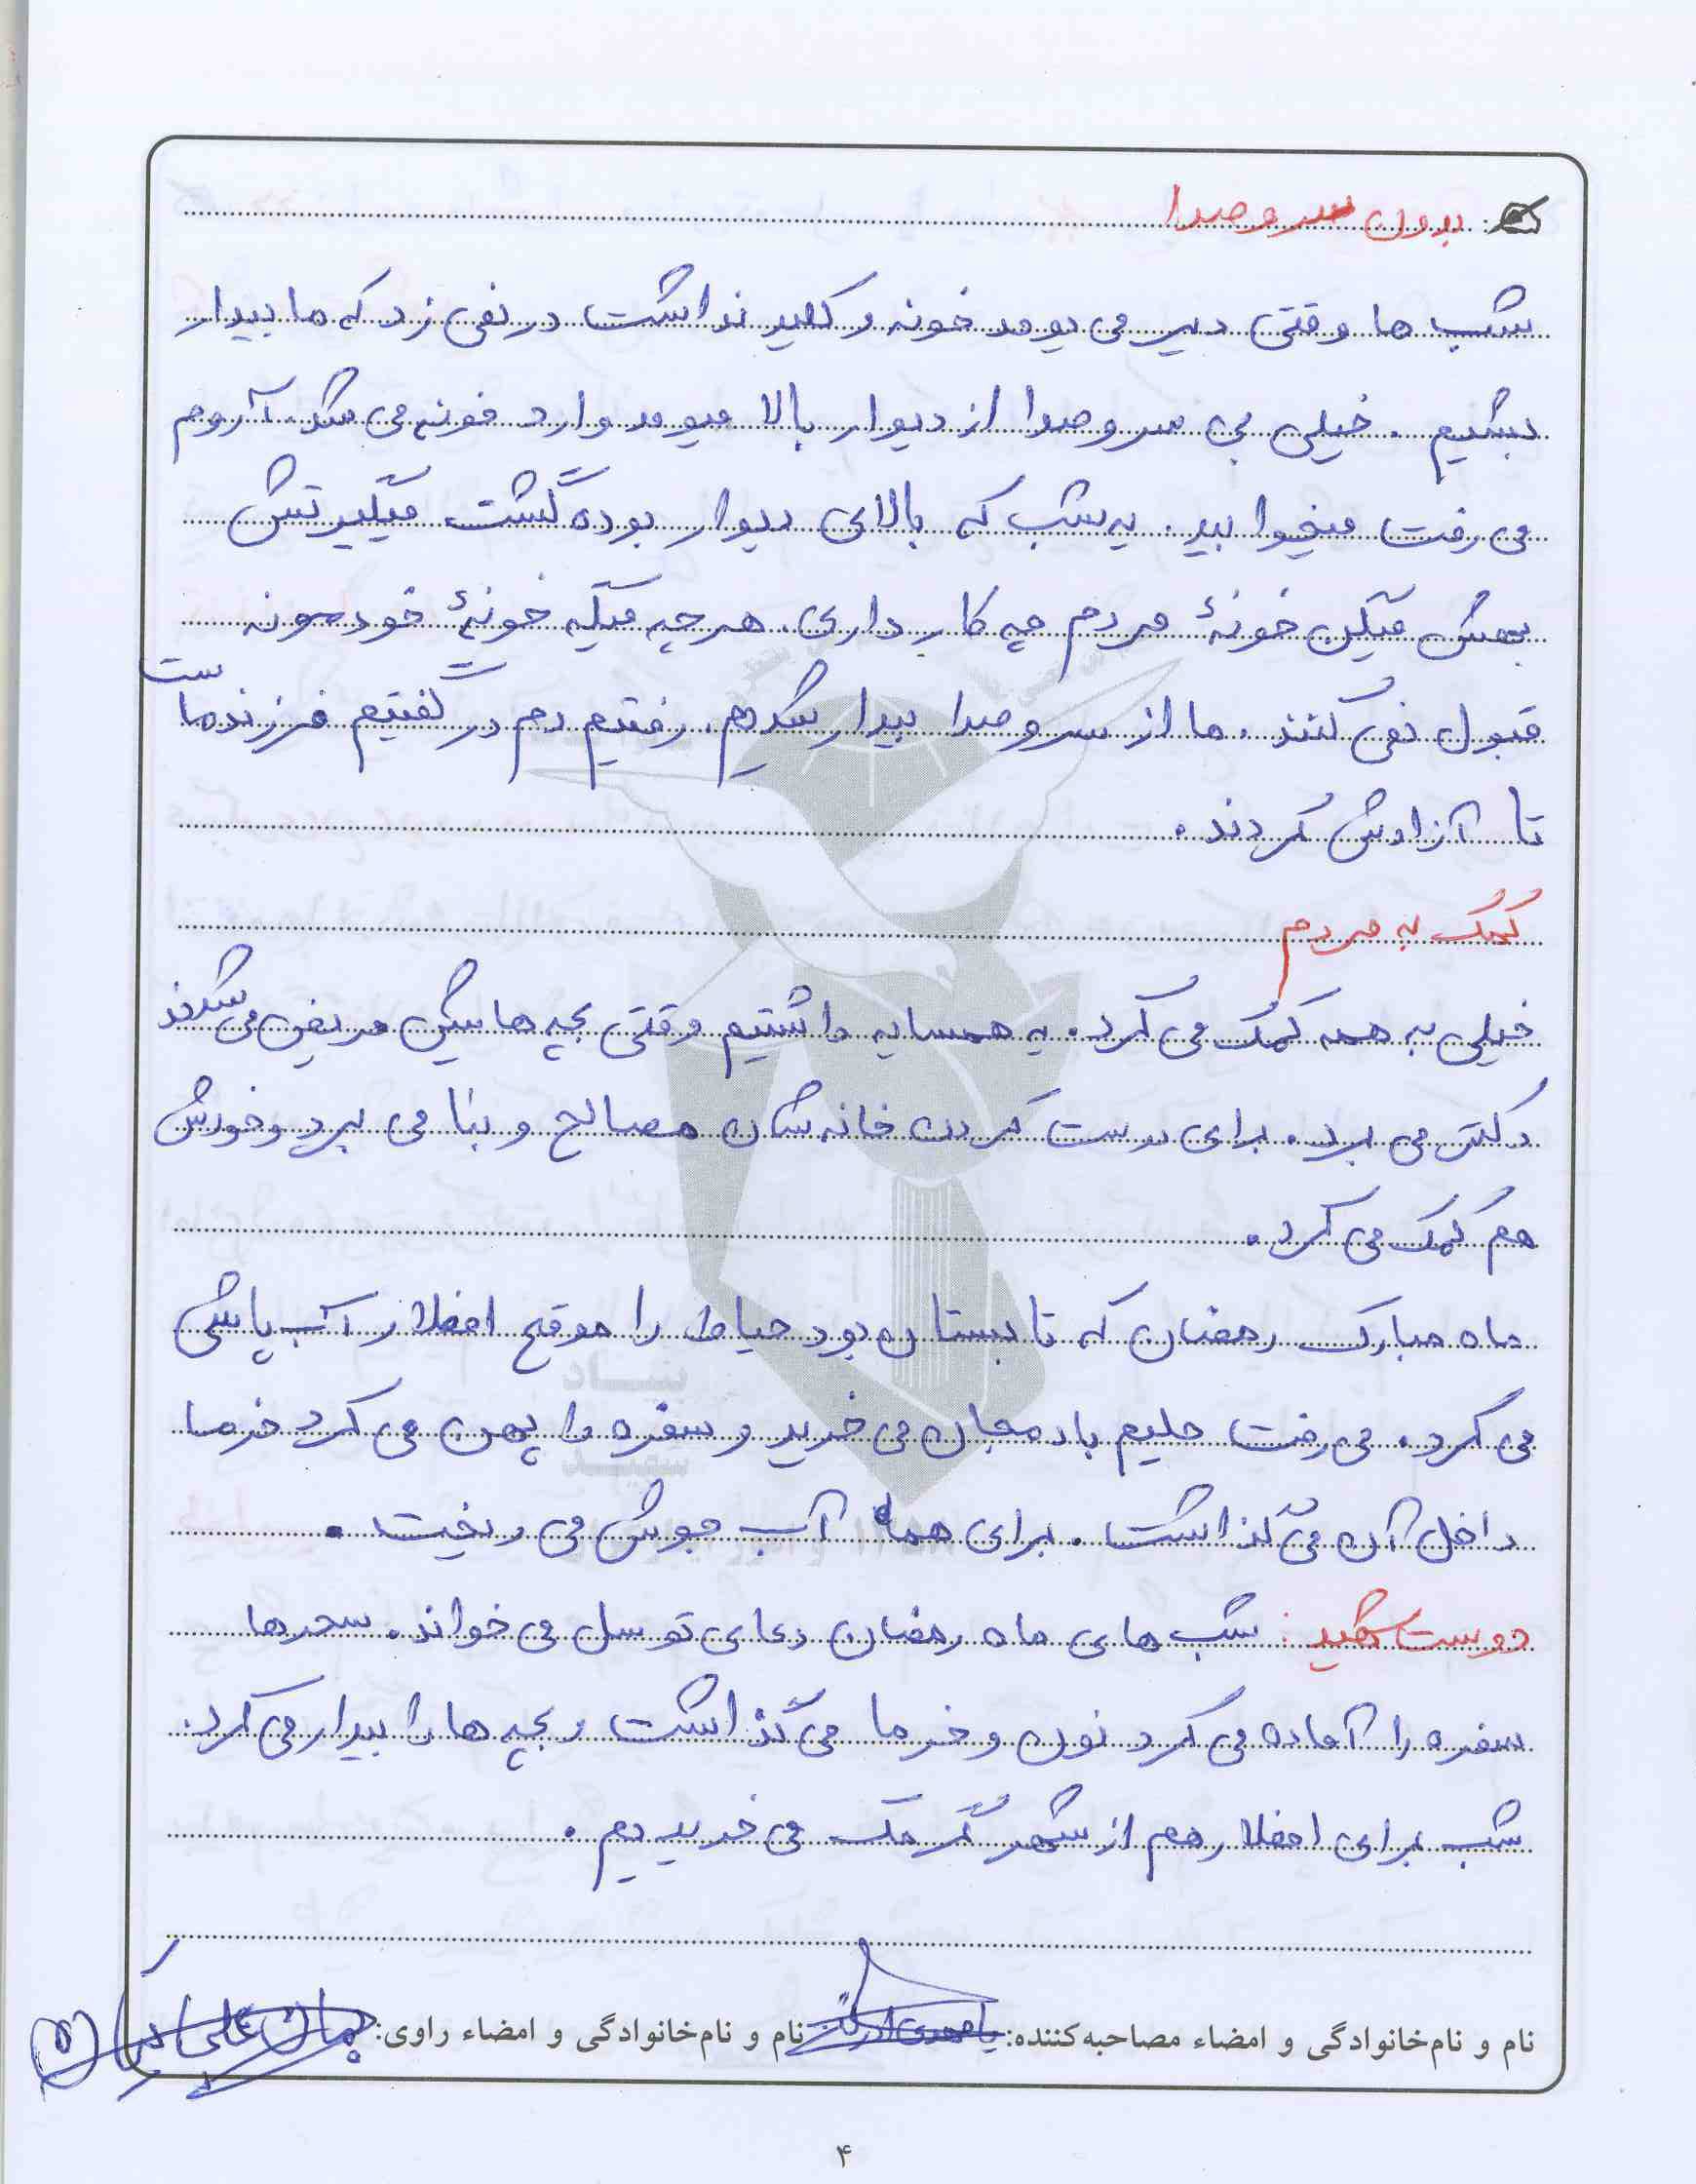 بدون سر و صدا
شب ها وقتی دیر می یومد خونه و کلید نداشت در نمی زد که ما بیدار
بشیم. خیلی بی سر و صدا از دیوار بالا میومد وارد خونه می شد. آروم
می رفت میخوابید. یه شب که بالای دیوار بوده گشت میگیرتش
بهش میگین خونهٔ مردم چه کار داری. هرچه میگه خونهٔ خودمونه
قبول نمی کنند. ما از سر و صدا بیدار شدیم. رفتیم دم در گفتیم فرزند ماست
تا آزادش کردند.
کمک به مردم
خیلی به همه کمک می کرد. یه همسایه داشتیم وقتی بچه هاشین مریض می شدند
دکتر می برد. برای درست کردن خانه شان مصالح و بنا می برد و خودش
هم کمک می کرد.
ماه مبارک رمضان که تابستان بود حیاط را موقع افطار آب پاشی
می کرد. می رفت حلیم بادمجان می خرید و سفره را پهن می کرد خرما
داخل آن می گذاشت. برای هما آب جوش می ریخت.
دوست شهید: شب های ماه رمضان دعای توسل می خواند. سحرها
سفره را آماده می کرد نون و خرما می گذاشت و بچه ها را بیدار می کرد.
شب برای افطار هم از شهر گرمک می خریدیم.
نام و نام‌خانوادگی و امضاء مصاحبه‌کننده: نام و نام‌خانوادگی و امضاء راوی:
۴